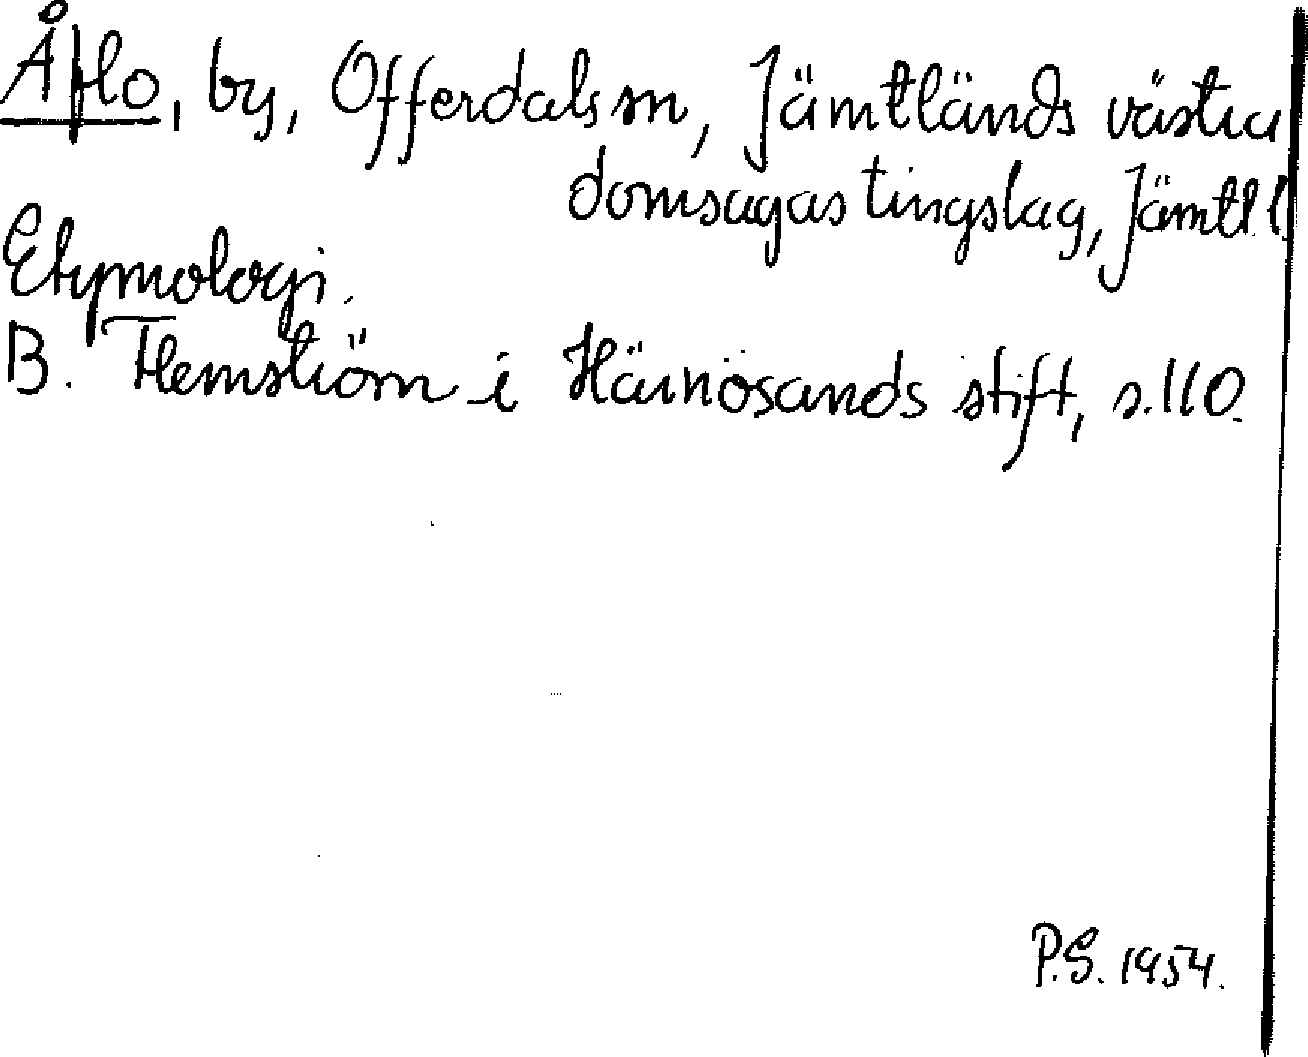 Åflo, by, Offerdals sn, Jämtländs västra
domsagas tingslag, Jämtl. l.
Etymologi.
B. Flemström i Härnösands stift, s. 110.
P.S. 1954.